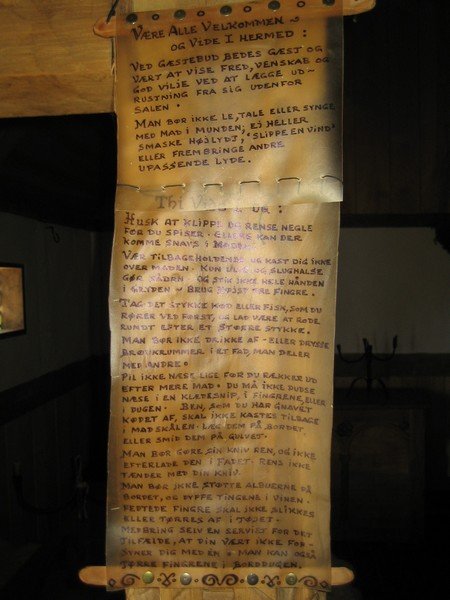 Være Alle Velkommen
og Vide I Hermed :
Ved Gæstebud bedes gæst og
vært at vise fred, venskab og
god vilje ved at lægge ud-
rustning fra sig udenfor
salen .
Man bør ikke le, tale eller synge
med mad i munden; ei heller
smaske højlydt, "slippe en vind"
eller frembringe andre
upassende lyde.
Thi
Husk at klippe og rense negle
før du spiser. Ellers kan der
komme snavs i maden.
Vær tilbageholdende og kast dig ikke
over maden. Kun og slughalse
gør sådan og stik ikke hele hånden
i gryden - brug fingre.
Tag det stykke kød eller fisk, som du
rører ved først, og lad være at rode
rundt efter et større stykke.
Man bør ikke drikke af - eller drysse
brødkrummer i et fad, man deler
med andre.
Pil ikke næse lige før du rækker ud
efter mere mad. Du må ikke pudse
næse i en klædesnip, i fingrene, eller
i dugen. Ben, som du har gnavet
kødet af, skal ikke kastes tilbage
i madskålen. Læg dem på bordet
eller smid dem på gulvet.
Man bør gøre sin kniv ren, og ikke
efterlade den i fadet. Rens ikke
tænder med din kniv.
Man bør ikke støtte albuerne på
bordet, og dyppe tingene i vinen.
Fedtede fingre skal ikke slikkes
eller tørres af i tøjet.
Medbring selv en serviet for det
tilfælde, at din vært ikke for-
syner dig med én - man kan også
tørre fingrene i borddugen.